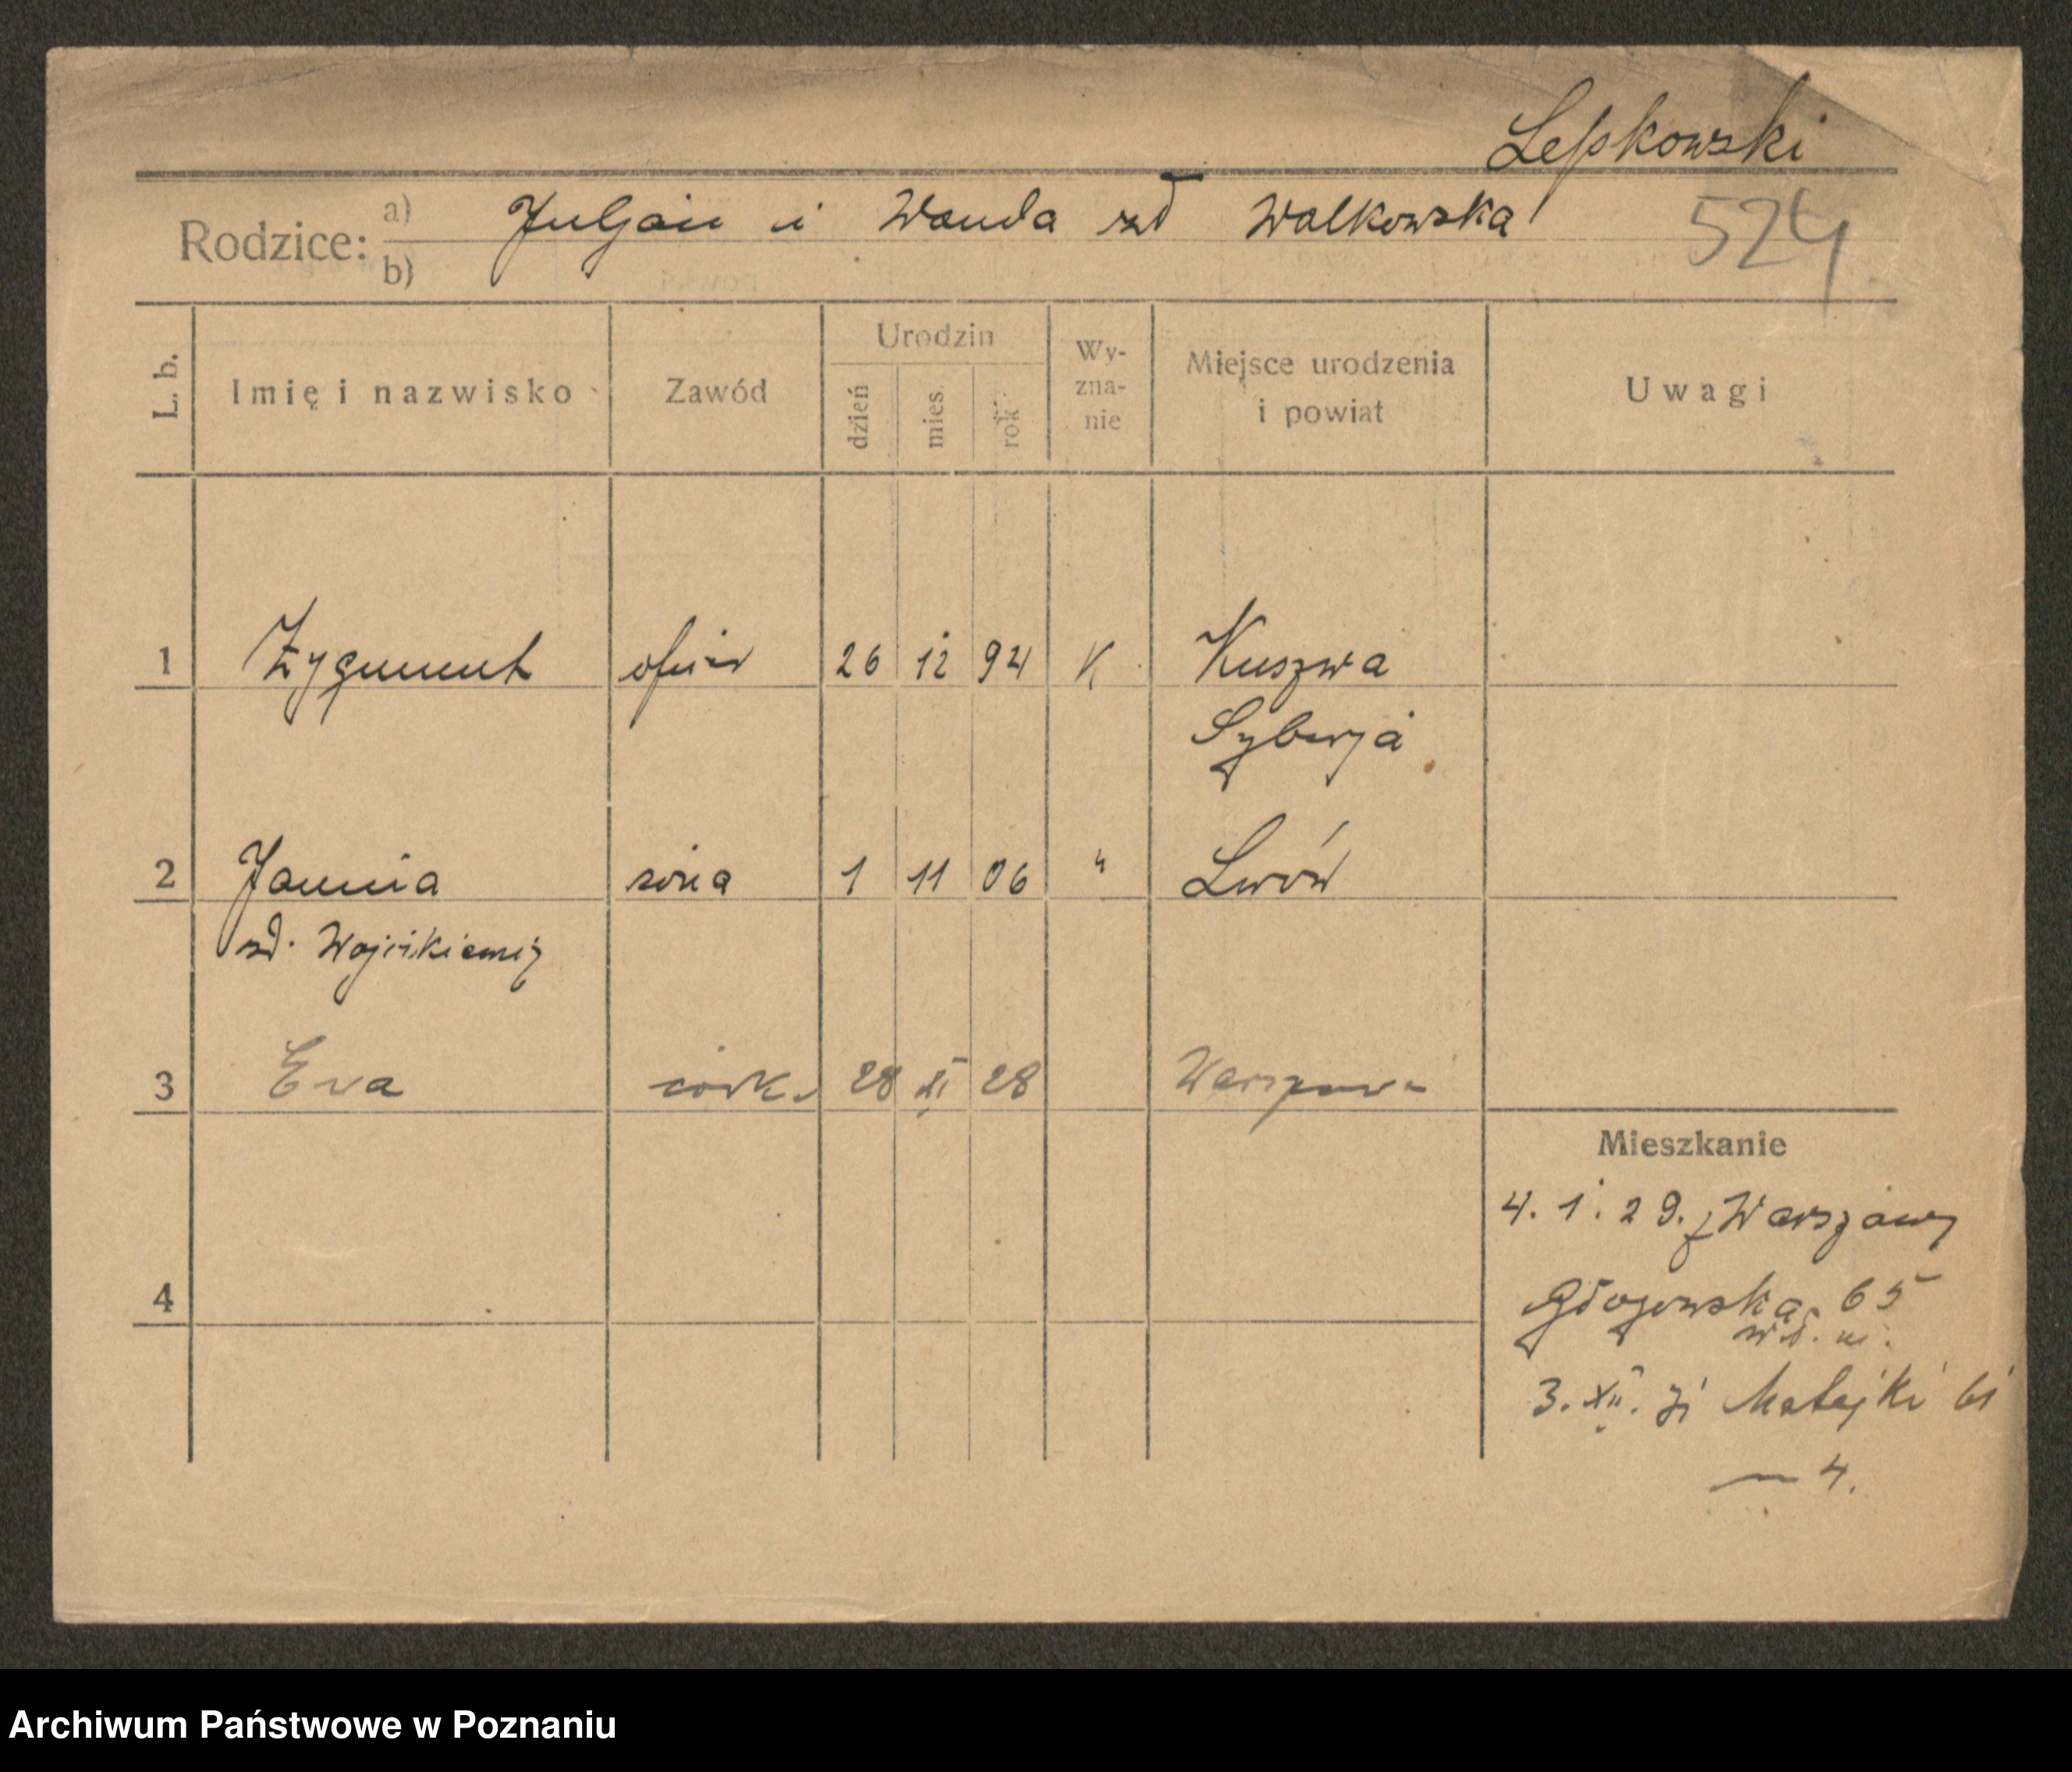 Lepkowski
Rodzice: a) b) Juljan i Wanda zd Walkowska
524
L. b. Imię i nazwisko Zawód Urodzin dzień mies. rok Wy-zna-nie Miejsce urodzenia i powiat Uwagi
1 Zygmunt oficer 26 12 94 K Kuszwa
Syberja
2 Janina żona 1 11 06 " Lwów
zd. Wojcikiewicz
3 Ewa córka 28 XI 28 Warszawa
Mieszkanie
4. 1. 29. z Warszawy
4 Głogowska 65
3. XII. 31 Matejki 61
— 4.
Archiwum Państwowe w Poznaniu